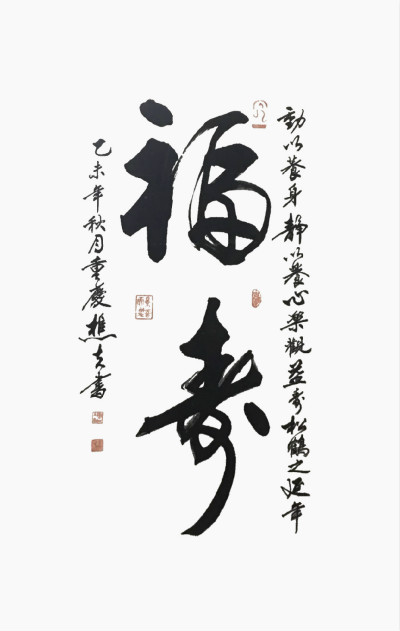 動以養身靜以養心樂觀益寿松鶴之延年
福寿
乙未年秋月重慶樵書